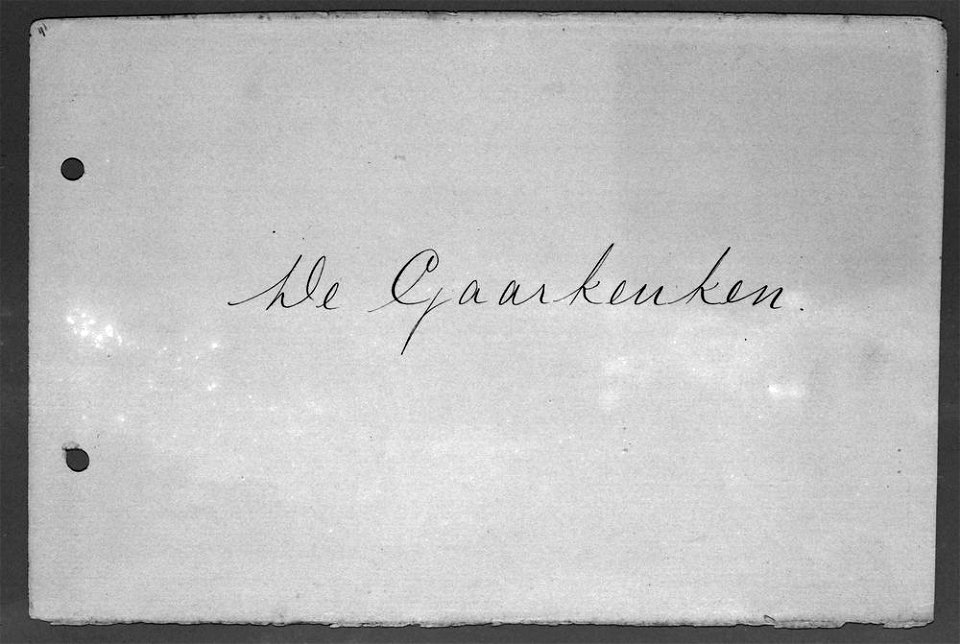 De Gaarkeuken.